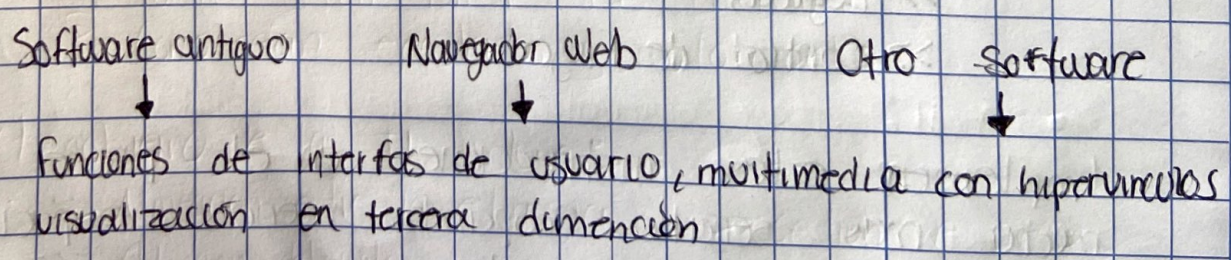 Software antiguo Navegador Web Otro software
funciones de interfas de usuario, multimedia con hipervinculos
visualización en tercera dimención